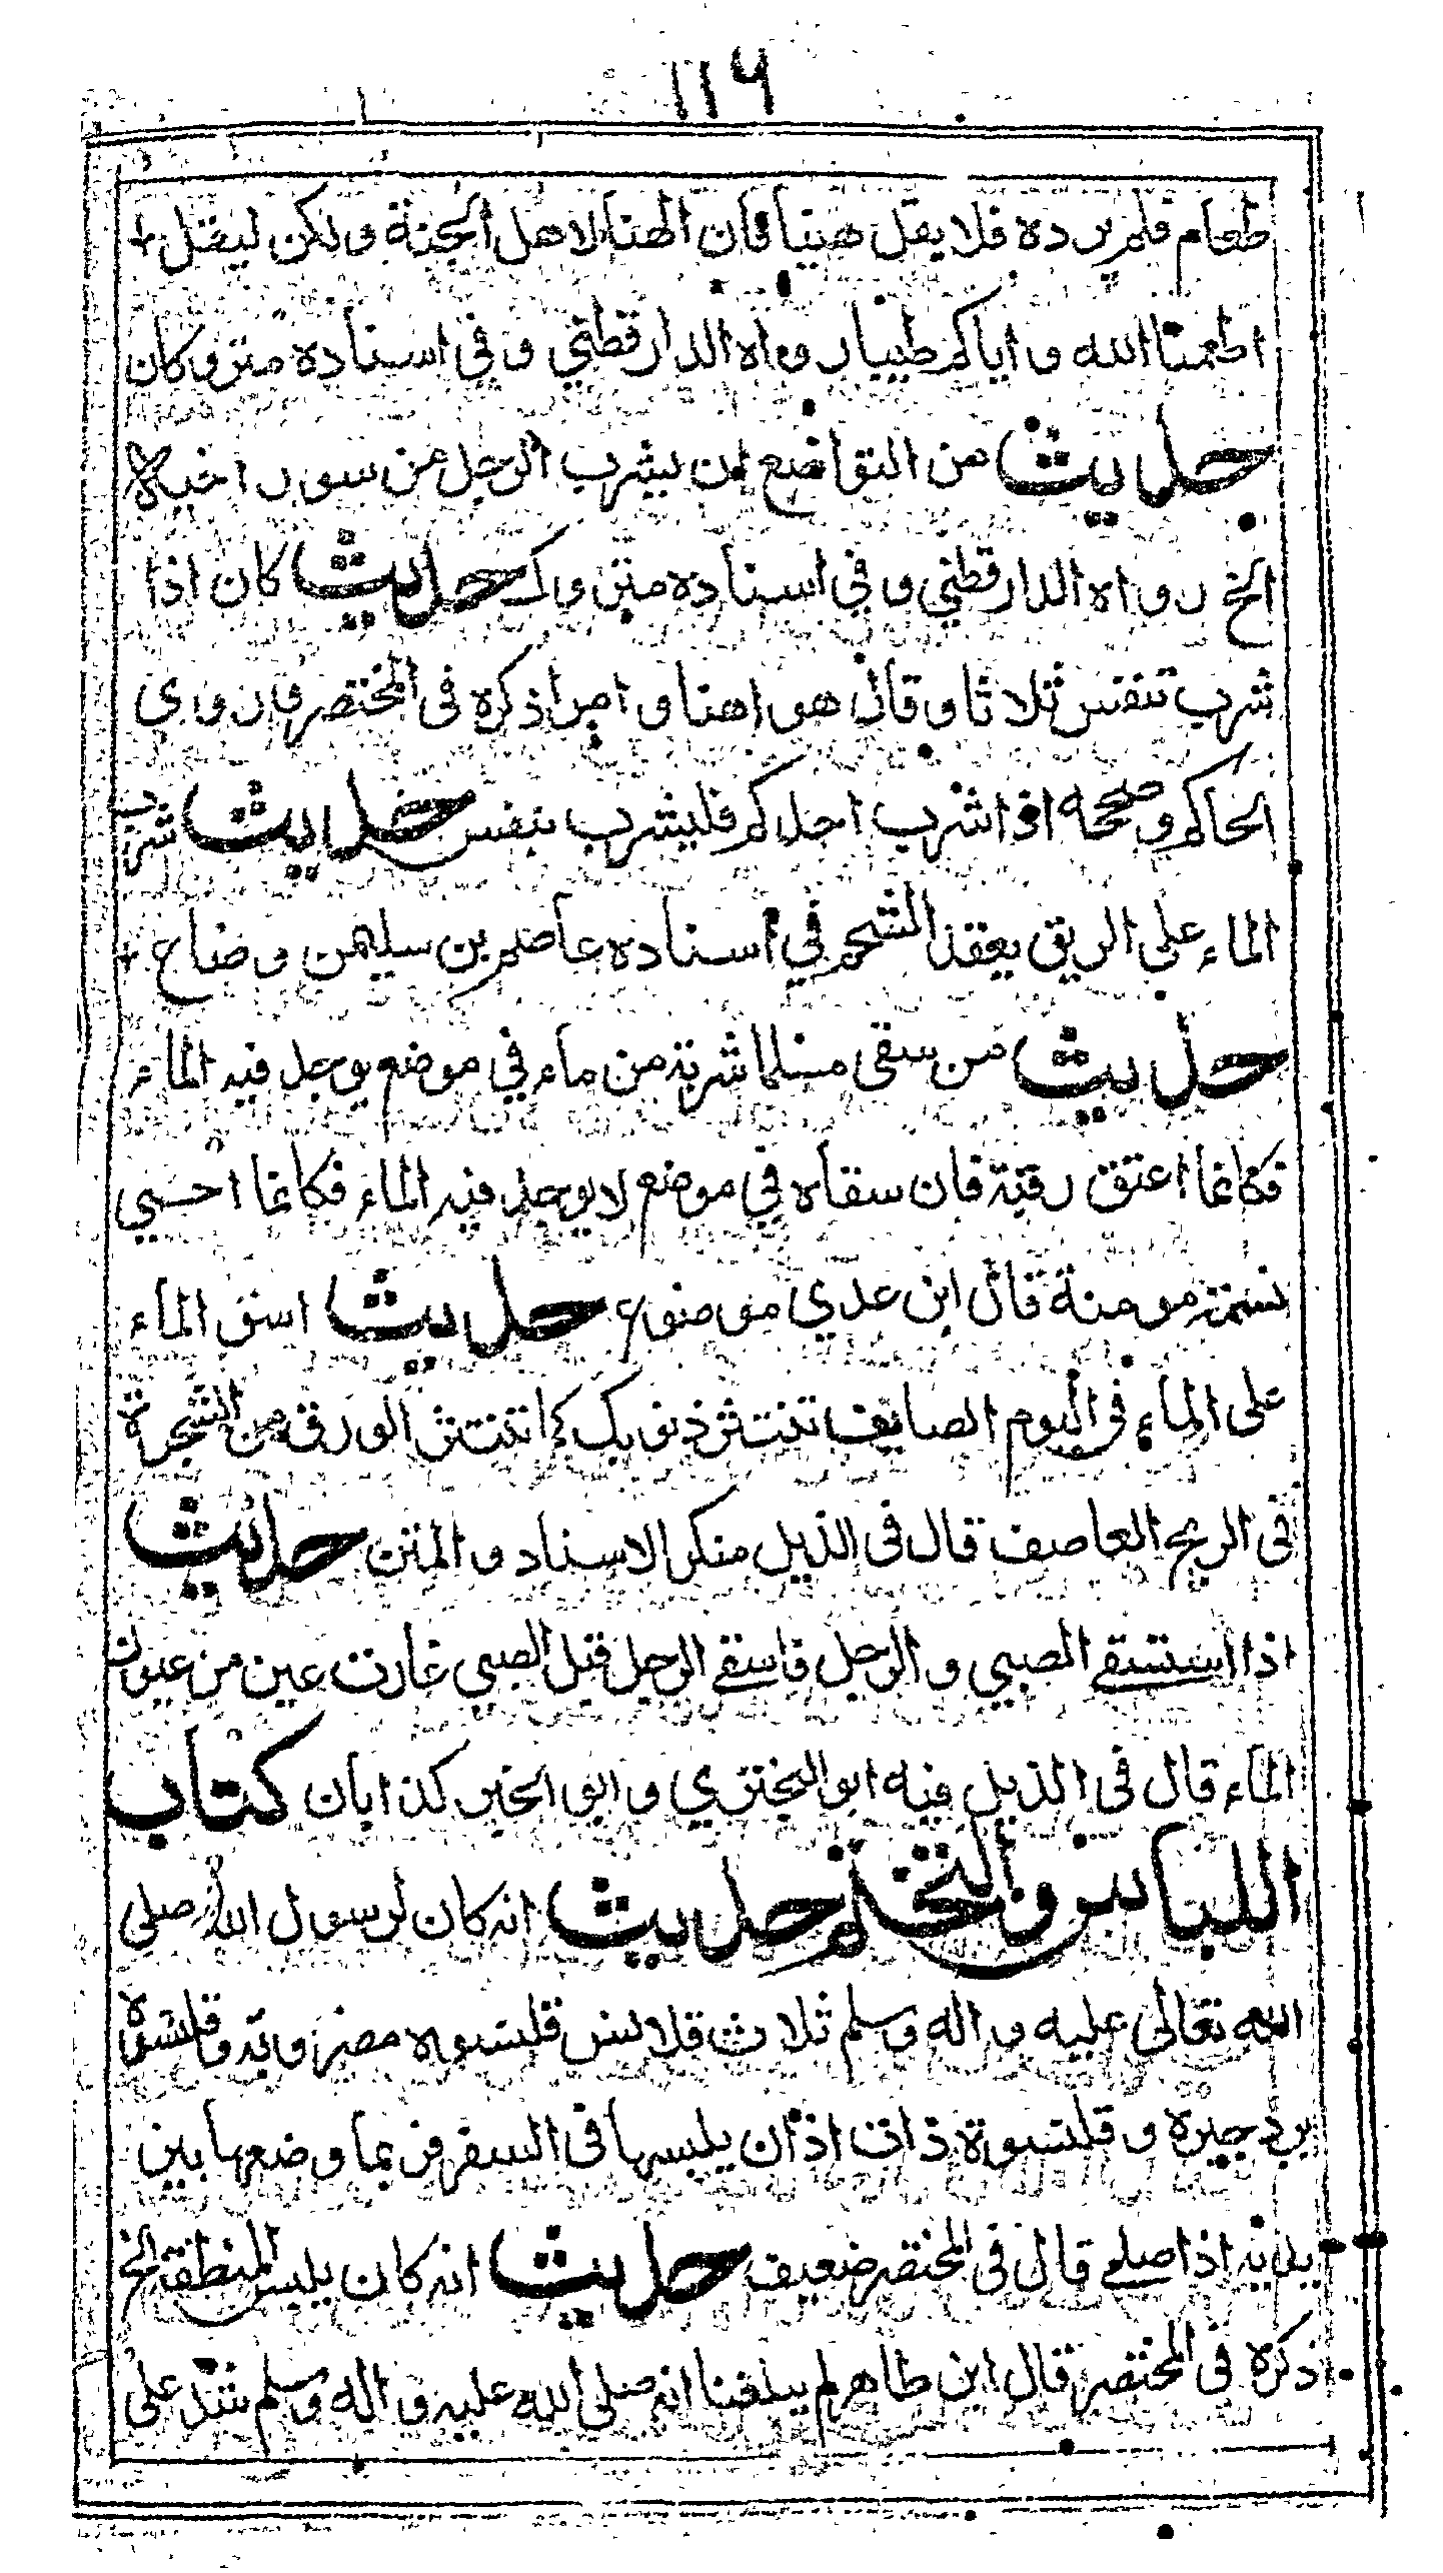 ١١٩
طعام فلم يرده فلا يقل هنيا فان الهنا لاهل الجنة ولكن ليقل
اطعمنا الله واياكم طيبا رواه الدارقطني وفي اسناده متروكان
حديث من التواضع ان يشرب الرجل من سور اخيه
الخ رواه الدارقطني وفي اسناده متروك حديث كان اذا
شرب تنفس ثلاثا وقال هو اهنا وامرا ذكره في المختصر وروى
الحاكم وصححه اذا شرب احدكم فليشرب بنفس حديث شرب
الماء على الريق يعقد الشحم في اسناده عاصم بن سليمن وضاع
حديث من سقى مسلما شربة من ماء في موضع يوجد فيه الماء
فكانما اعتق رقبة فان سقاه في موضع لا يوجد فيه الماء فكانما احيى
نسمة مومنة قال ابن عدي موضوع حديث اسق الماء
على الماء في اليوم الصايف تنتثر ذنوبك كما تنتثر الورق من الشجرة
في الريح العاصف قال في الذيل منكر الاسناد والمتن حديث
اذا استسقى الصبي والرجل فاسقي الرجل قبل الصبي غارت عين من عيون
الماء قال في الذيل فيه ابو البختري وابو الخير كذابان كتاب
اللباس والتختم حديث انه كان لرسول الله صلى
الله تعالى عليه واله وسلم ثلاث قلانس قلنسوه مضربة وقلنسوة
برد حبرة وقلنسوة ذات اذان يلبسها في السفر فربما وضعها بين
يديه اذا صلى قال في المختصر ضعيف حديث انه كان يلبس المنطقة الخ
ذكره في المختصر قال ابن طاهر لم يبلغنا انه صلى الله عليه واله وسلم شد على